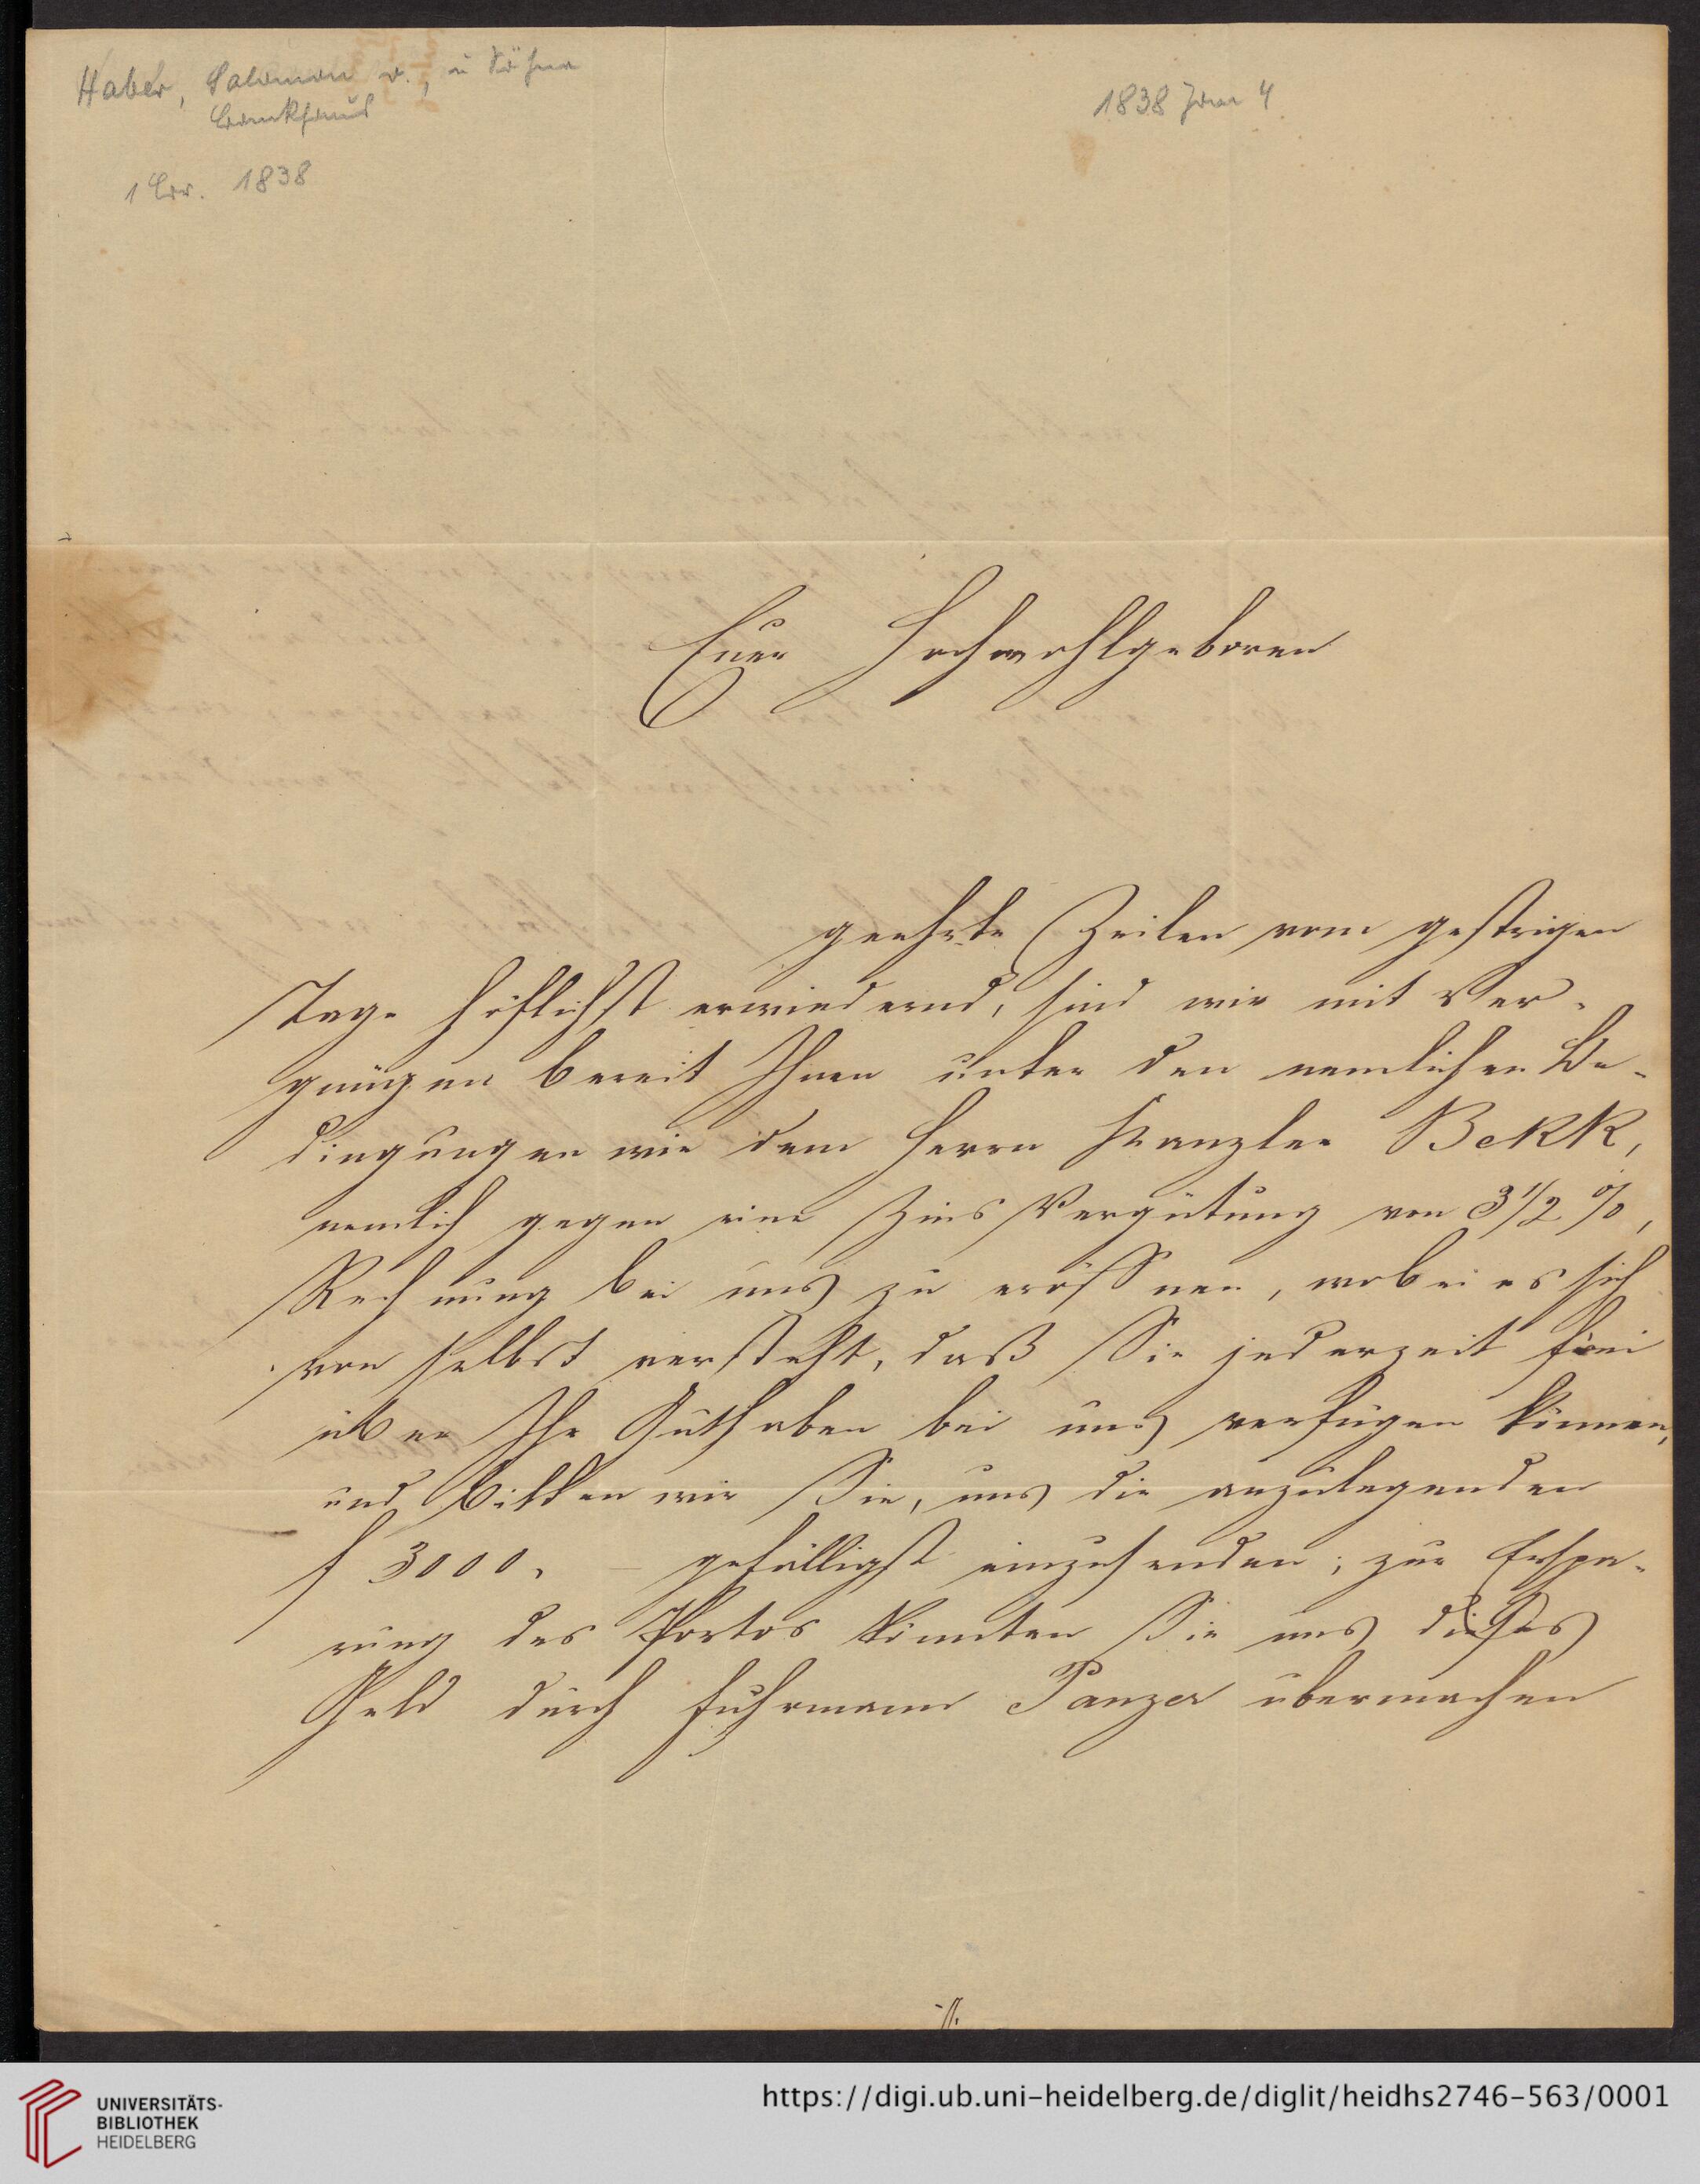 Haber, Salomon v., u Söhne
Bankhaus
1838 Jan 4
1 Br. 1838
Euer Hochwohlgeboren
geehrte Zeilen vom gestrigen
Tage höflichst erwiedernd, sind wir mit Ver-
gnügen bereit Ihnen unter den nemlichen Be-
dingungen wie dem Herrn Kanzler Bekk,
nemlich gegen eine Zins Vergütung von 3 1/2 %,
Rechnung bei uns zu eröffnen, wobei es sich
von selbst versteht, daß Sie jederzeit frei
über Ihr Guthaben bei uns verfügen können,
und bitten wir Sie, uns die anzulegenden
f 3000. – gefälligst einzusenden; zur Erspa-
rung des Portos könnten Sie uns dieses
Geld durch Fuhrmann Panzer übermachen
UNIVERSITÄTS-
BIBLIOTHEK
HEIDELBERG
https://digi.ub.uni-heidelberg.de/diglit/heidhs2746-563/0001